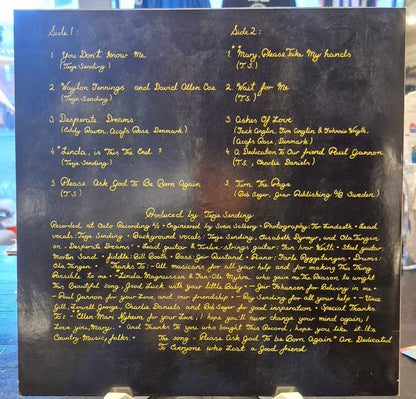 Side 1:
1 You Don't Know Me
(Terje Sending)
2 Waylon Jennings and David Allen Coe
(Terje Sending)
3 Desperate Dreams
(Eddy Raven, Acuff Rose Denmark)
4 *Linda, is This The End?
(Terje Sending)
5 Please Ask God To Be Born Again
(T.S.)
Side 2:
1 **Mary, Please Take My hands
(T.S.)
2 Wait for Me
(T.S.)
3 Ashes Of Love
(Jack Anglin, Jim Anglin & Johnnie Wright,
Acuff Rose, Denmark)
4 A Dedication To Our friend Paul Gannon
(T.S., Charlie Daniels)
5 Turn The Page
(Bob Seger, Gear Publishing Sweden)
Produced by Terje Sending
Recorded at Oslo Recording • Engineered by Svein Solberg • Photography: Tor Lindseth • Lead
vocals: Terje Sending • Background vocals: Terje Sending, Elisabeth and Ola Tangen
on • Desperate Dreams • • Lead guitar & Twelve-strings guitar: • Steel guitar:
Morten Sand • fiddle: Bill Booth • Bass: Geir • Piano: • Drums:
Ola Tangen • Thanks To: - All musicians for all your help and for making This Thing
Possible to me • - *Linda Magnussen & who gave me The Reason to wright
This Beautiful song, Good Luck with your little Baby • - Geir Johansen for Beliving in me •
- Paul Gannon for your Love and our friendship • - Roy Sending for all your help • - Vince
Gill, Lowell George, Charlie Daniels and Bob Seger for good insperation • Special Thanks
To: - **Ellen Mari Nyheim for your Love, I hope you'll never change your mind again, I
Love you, Mary. • And Thanks To you who bought This Record, hope you like it. It's
Country-Music, folks. • The song - Please Ask God To be Born Again* Are Dedicated
To Everyone who Lost a Good friend